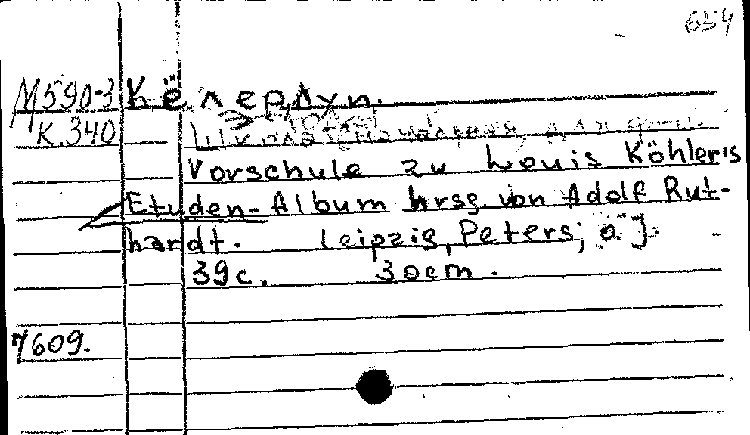 654
М590-3 Кёлер, Луи.
К.340
Vorschule zu Louis Köhler's
Etuden-Album hrsg. von Adolf Rut-
hardt. Leipzig, Peters, o. J.
39 c. 30 cm.
7609.